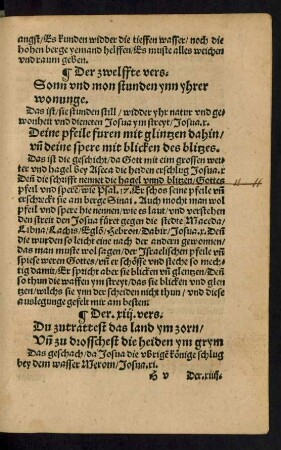 angst/Es kunden widder die tieffen wasser/noch die
hohen berge yemand helffen/Es muste alles weichen
vnd raum geben.
¶ Der zwelffte vers.
Sonn vnd mon stunden ynn yhrer
wonunge.
Das ist/sie stunden still/widder yhr natur vnd ge
wonheit vnd dieneten Josua ym streyt/Josua.x.
Deine pfeile furen mit glintzen dahin/
vñ deine spere mit blicken des blitzes.
Das ist die geschicht/da Gott mit eim grossen wet
ter vnd hagel bey Aseca die heiden erschlug Josua.x
Deñ die schrifft nennet die hagel vnnd blitzen/Gottes
pfeil vnd spere/wie Psal.17.Er schos seine pfeile vñ
erschreckt sie am berge Sinai. Auch mocht man wol
pfeil vnd spere hie nennen/wie es laut/vnd verstehen
den streit den Josua füret gegen die stedte Maceda/
Libna/Lachis/Eglõ/Hebron/Dabir/Josua.x. Denn
die wurden so leicht eine nach der andern gewonnen/
das man muste wol sagen/der Israelischen pfeile vñ
spiese weren Gottes/vñ er schösse vnd steche so mech-
tig damit/Er spricht aber sie blicken vñ glintzen/Deñ
so thun die waffen ym streyt/das sie blicken vnd glin
tzen/wilchs sie ynn der scheiden nicht thun/vnd diese
auslegunge gefelt mir am besten.
¶ Der.xiij.vers.
Du zutrattest das land ym zorn/
Vñ zu drosschest die heiden ym grym
Das geschach/da Josua die vbrige könige schlug
bey dem wasser Merom/Josua.xi.
H v Der.xiiij.